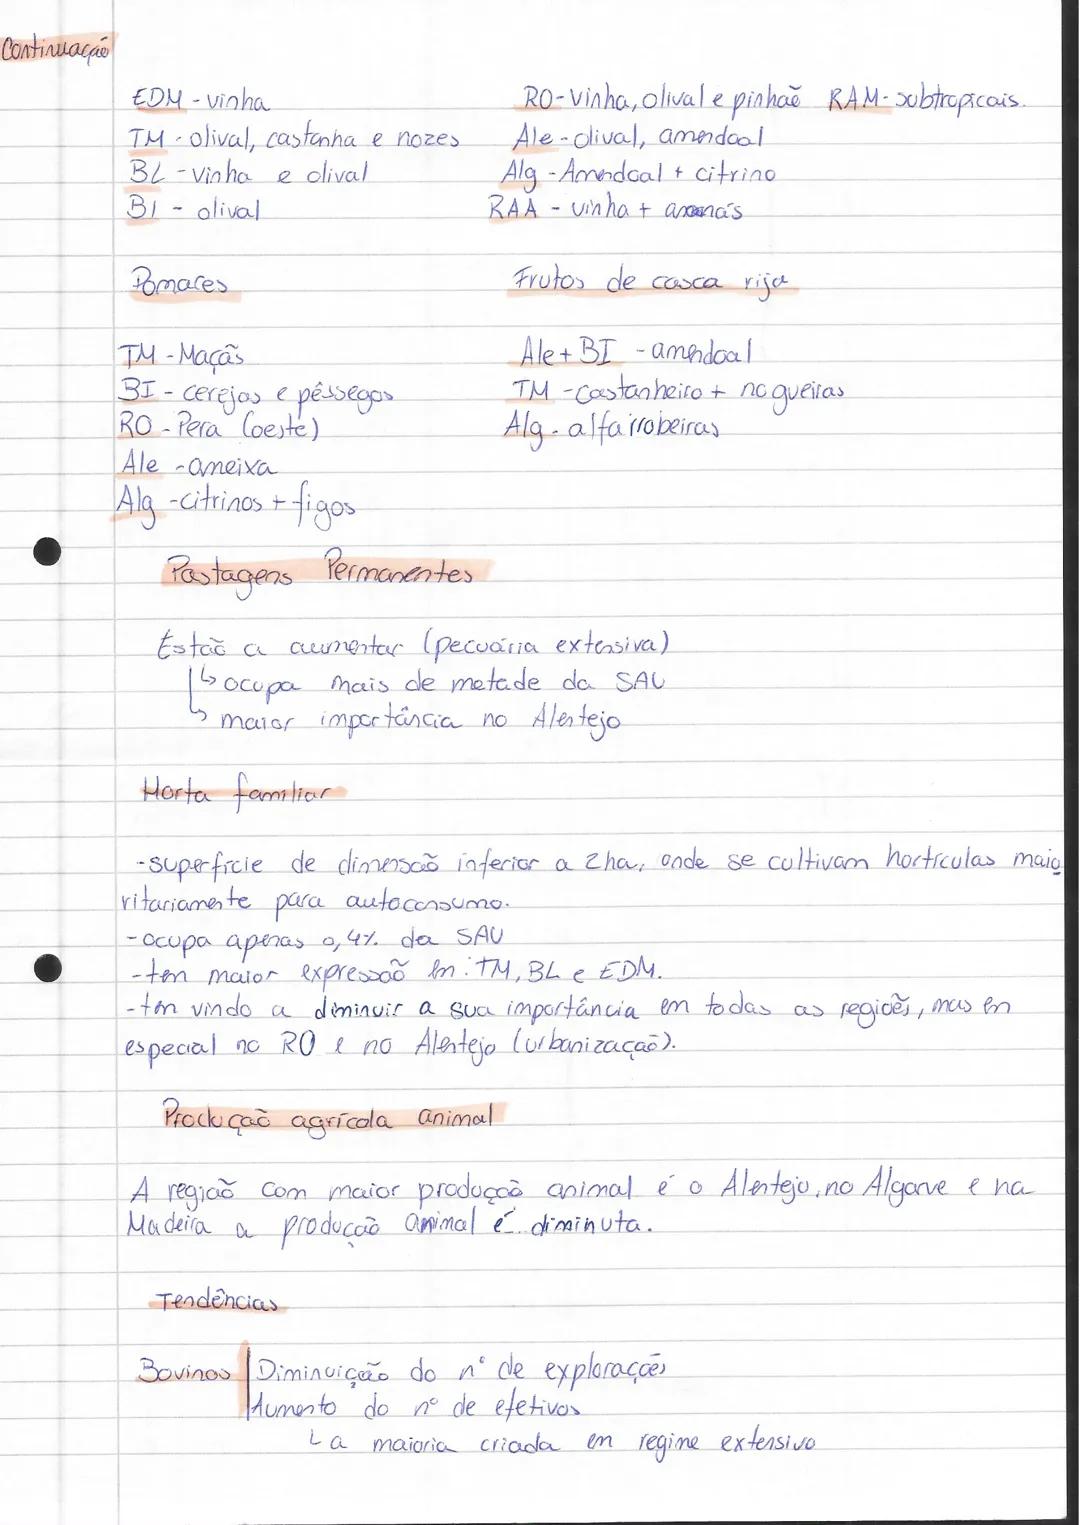 Continuação
EDM - vinha
RO - Vinha, olival e pinhaõ RAM - subtropicais.
TM - olival, castanha e nozes
Ale - olival, amendoal
BL - Vinha e olival
Alg - Amendoal + citrino
BI - olival
RAA - vinha + ananás
Pomares
Frutos de casca rija
TM - Maçãs
Ale + BI - amendoal
BI - cerejas e pêssegos
TM - castanheiro + nogueiras
RO - Pera (oeste)
Alg - alfarrobeiras
Ale - ameixa
Alg - citrinos + figos
Pastagens Permanentes
Estaõ a aumentar (pecuária extensiva)
↳ ocupa mais de metade da SAU
↳ maior importância no Alentejo
Horta familiar
- superfície de dimensaõ inferior a 2ha, onde se cultivam hortículas maio
ritariamente para autoconsumo.
- ocupa apenas 0,4% da SAU
- tem maior expressaõ em: TM, BL e EDM.
- tem vindo a diminuir a sua importância em todas as regiões, mas em
especial no RO e no Alentejo (urbanizaçaõ).
Produçaõ agrícola animal
A regiaõ com maior produçaõ animal é o Alentejo, no Algarve e na
Madeira a produçaõ animal é diminuta.
Tendências
Bovinos | Diminuição do nº de explorações
Aumento do nº de efetivos
↳ a maioria criada em regime extensivo